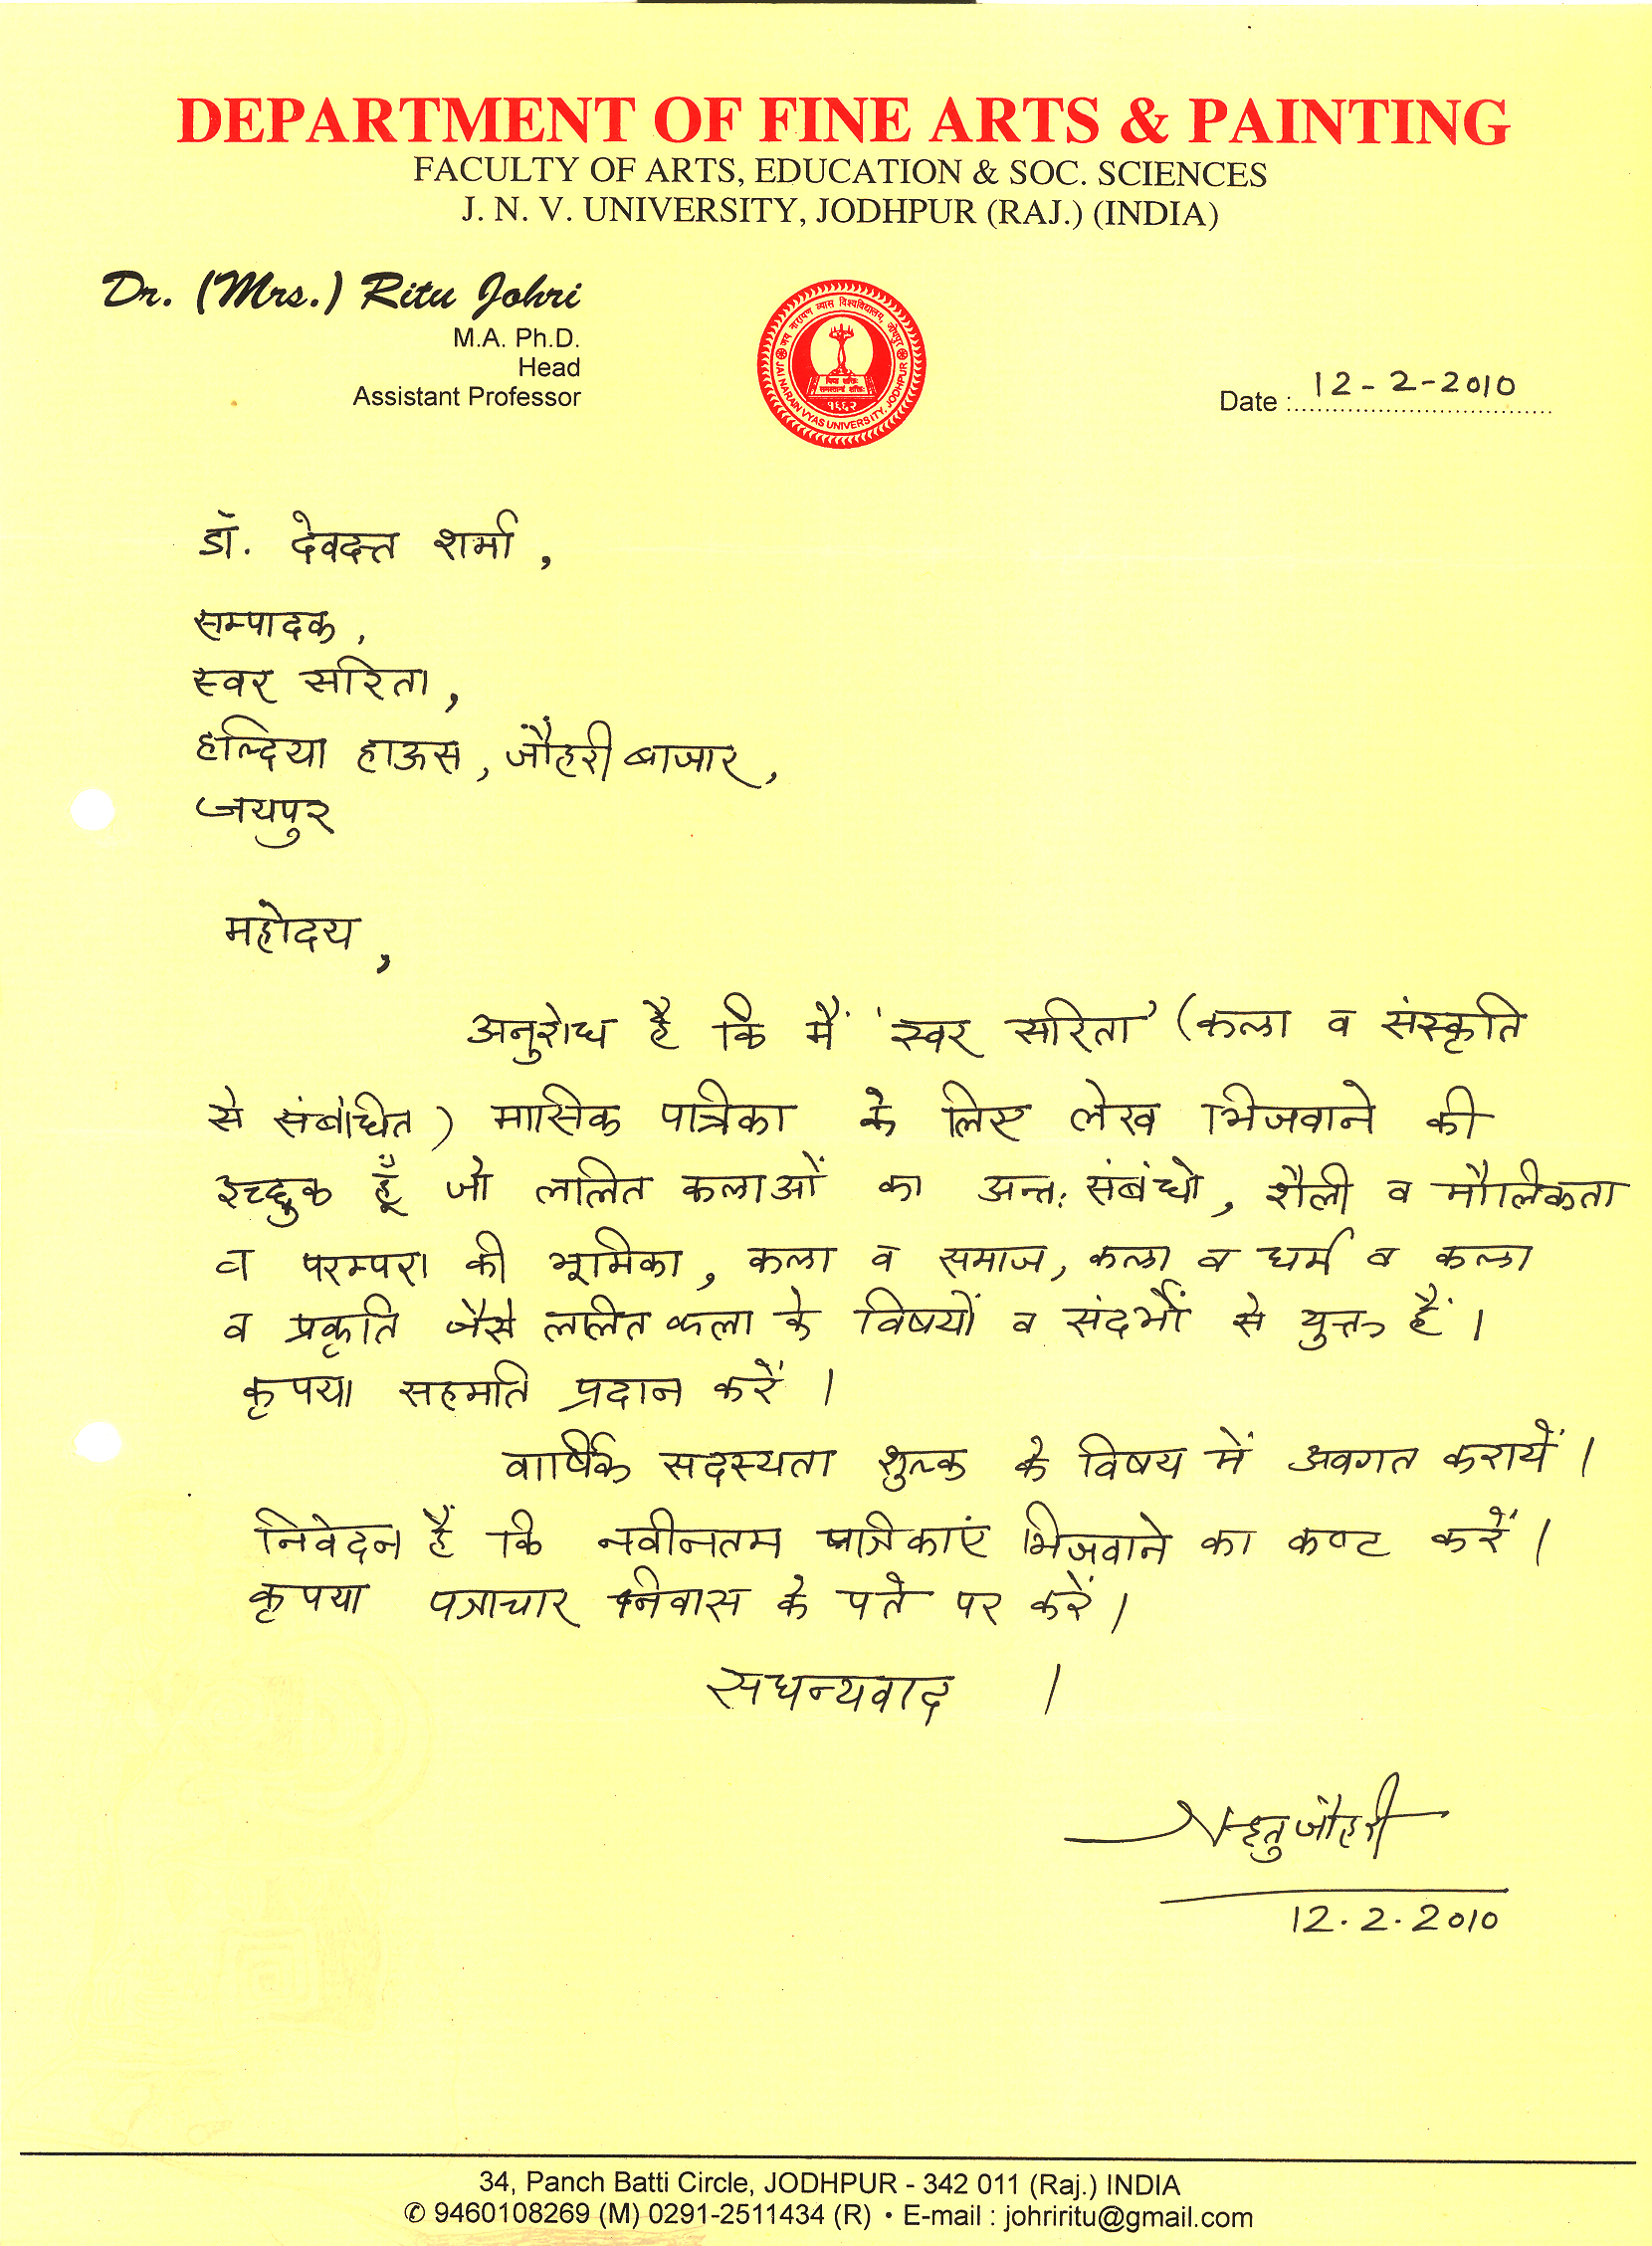 DEPARTMENT OF FINE ARTS & PAINTING
FACULTY OF ARTS, EDUCATION & SOC. SCIENCES
J. N. V. UNIVERSITY, JODHPUR (RAJ.) (INDIA)
Dr. (Mrs.) Ritu Johri
M.A. Ph.D.
Head
Assistant Professor
जय नारायण व्यास विश्वविद्यालय, जोधपुर
विद्या शक्तिः
समस्तानां शक्तिः
१९६२
JAI NARAIN VYAS UNIVERSITY, JODHPUR
Date : 12-2-2010
डॉ. देवदत्त शर्मा,
सम्पादक,
स्वर सरिता,
हल्दिया हाऊस, जौहरी बाजार,
जयपुर
महोदय,
अनुरोध है कि मैं 'स्वर सरिता' (कला व संस्कृति
से संबंधित) मासिक पत्रिका के लिए लेख भिजवाने की
इच्छुक हूँ जो ललित कलाओं का अन्तः संबंधो, शैली व मौलिकता
व परम्परा की भूमिका, कला व समाज, कला व धर्म व कला
व प्रकृति जैसे ललित कला के विषयों व संदर्भों से युक्त हैं।
कृपया सहमति प्रदान करें।
वार्षिक सदस्यता शुल्क के विषय में अवगत करायें।
निवेदन हैं कि नवीनतम पत्रिकाएं भिजवाने का कष्ट करें।
कृपया पत्राचार निवास के पते पर करें।
सधन्यवाद ।
ऋतु जौहरी
12.2.2010
34, Panch Batti Circle, JODHPUR - 342 011 (Raj.) INDIA
✆ 9460108269 (M) 0291-2511434 (R) • E-mail : johriritu@gmail.com